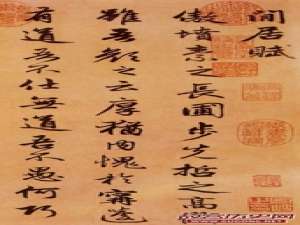 閒居賦
傲墳素之長圃步先哲之高
雖吾顏之云厚猶內愧於甯蘧
有道吾不仕無道吾不愚何巧